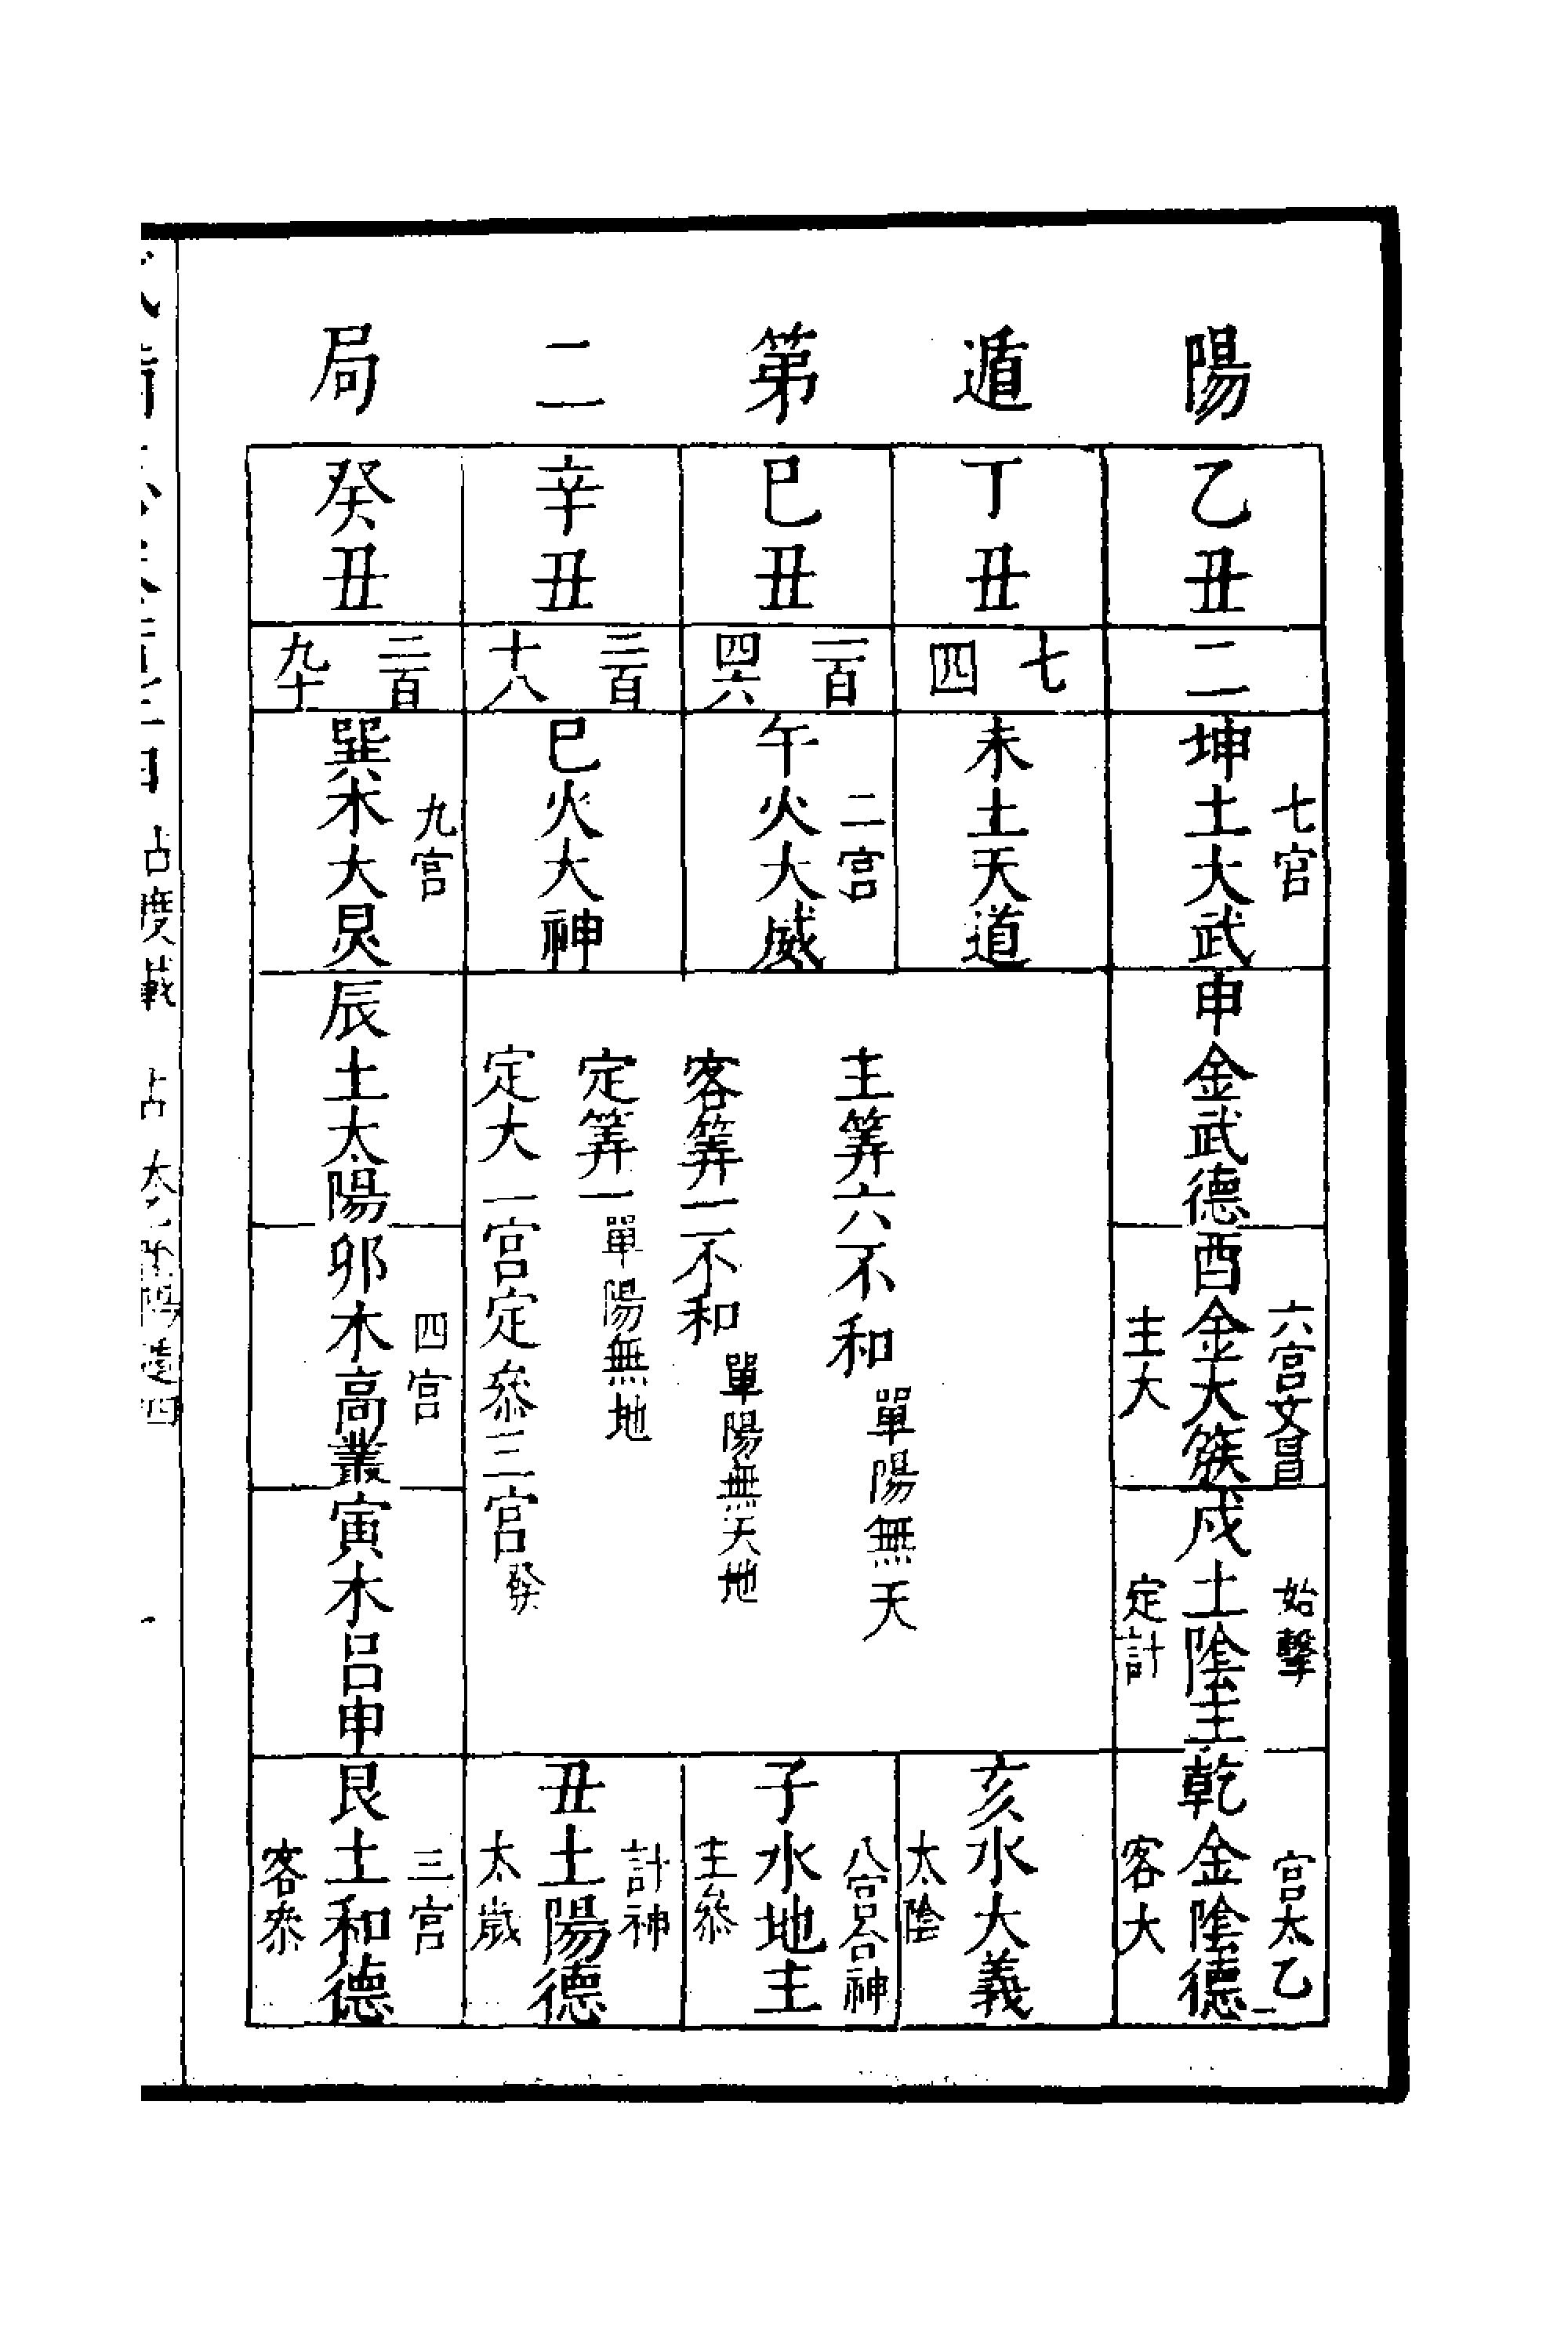 陽遁第二局
乙丑
丁丑
己丑
辛丑
癸丑
二
七四
一百四六
三百十八
二百九十
七宮
坤土大武
未土天道
二宮
午火大威
巳火大神
九宮
巽木大炅
申金武德
六宮文昌
酉金大簇
主大
始擊
戌土陰主
定計
一宮太乙
乾金陰德
客大
主筭六不和
單陽無天
客筭一不和
單陽無天地
定筭一
單陽無地
定大一宮定叅三宮
發
辰土太陽
四宮
卯木高叢
寅木呂申
亥水大義
太陰
八宮合神
子水地主
主叅
計神
丑土陽德
太歲
三宮
艮土和德
客叅
占度載 占 太乙 陽遁四